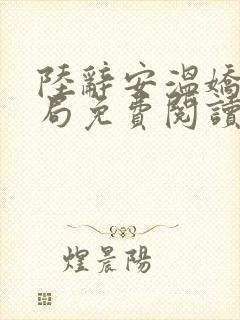 陸辭安溫嬌
局免費閱讀
煌晨陽